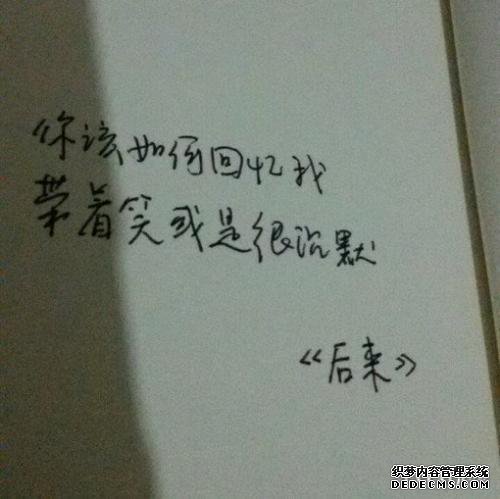 你该如何回忆我
带着笑或是很沉默
《后来》
织梦内容管理系统
DEDECMS.COM